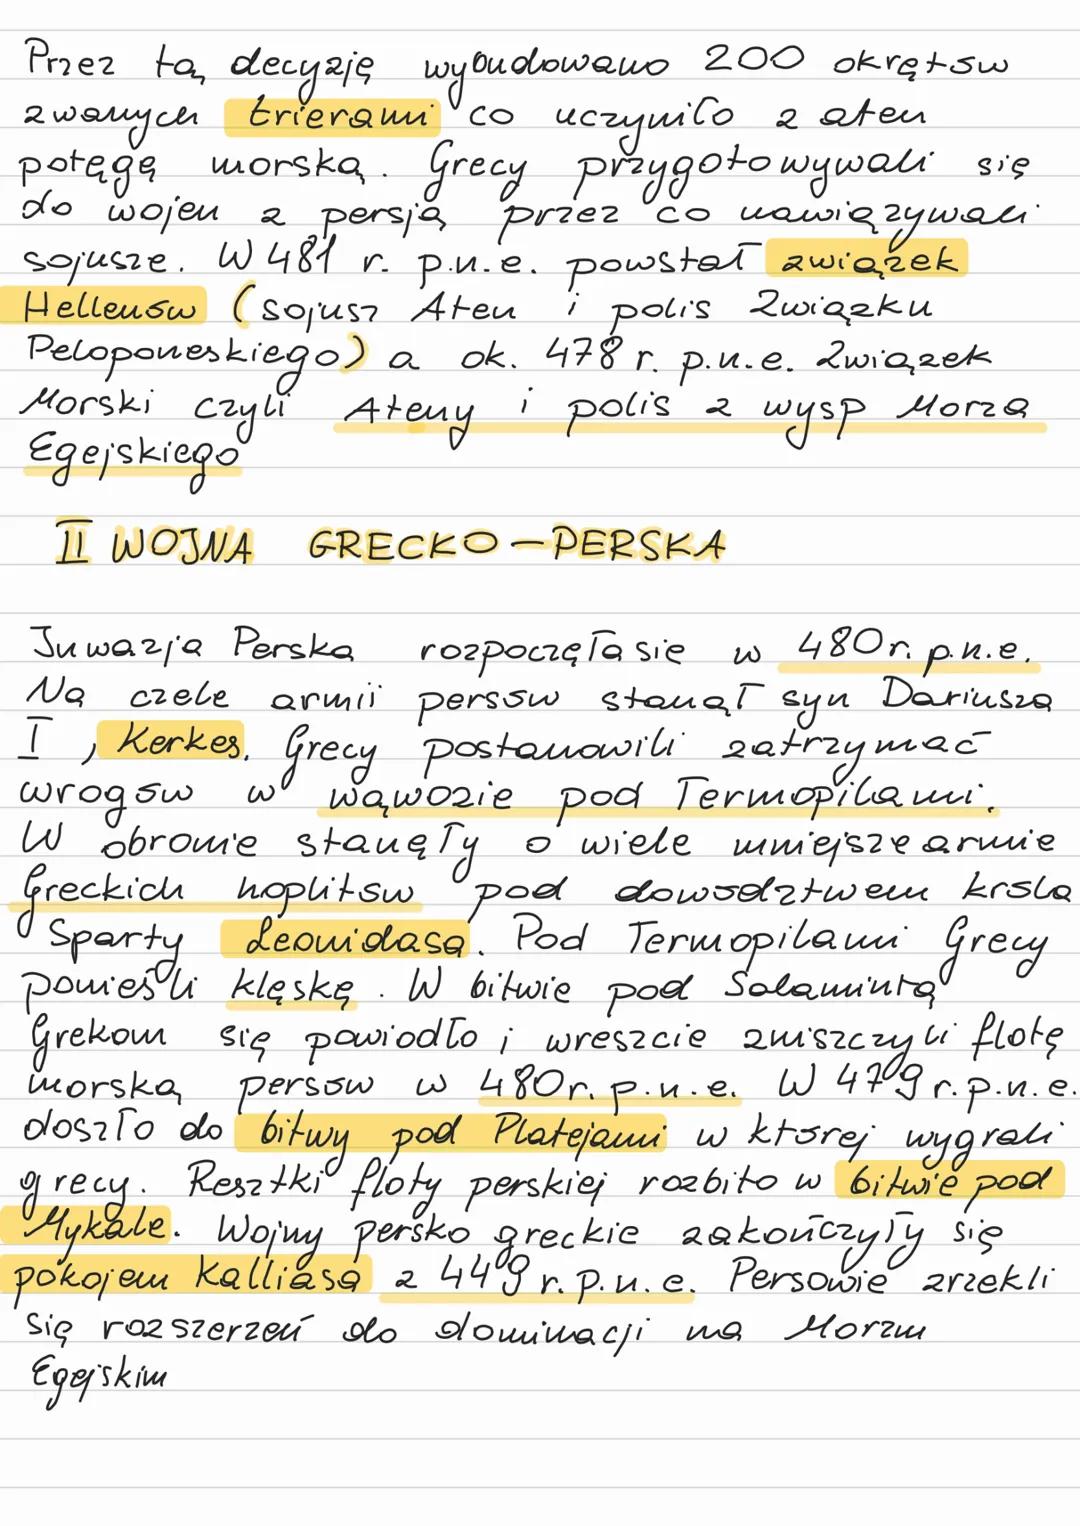 Przez tą decyzję wybudowano 200 okrętów
zwanych trierami co uczyniło z aten
potęgę morską. Grecy przygotowywali się
do wojen z persją przez co nawiązywali
sojusze. W 481 r. p.n.e. powstał związek
Hellenów (sojusz Aten i polis Związku
Peloponeskiego) a ok. 478 r. p.n.e. Związek
Morski czyli Ateny i polis z wysp Morza
Egejskiego
II WOJNA GRECKO-PERSKA
Inwazja Perska rozpoczęła sie w 480r. p.n.e.
Na czele armii persów stanął syn Dariusza
I, Kerkes. Grecy postanowili zatrzymać
wrogów w wąwozie pod Termopilami.
W obronie stanęły o wiele mniejsze armie
Greckich hoplitów pod dowództwem króla
Sparty Leonidasa. Pod Termopilami Grecy
ponieśli klęskę. W bitwie pod Salaminą
Grekom się powiodło i wreszcie zniszczyli flotę
morską persów w 480r. p.n.e. W 479 r.p.n.e.
doszło do bitwy pod Platejami w której wygrali
grecy. Resztki floty perskiej rozbito w bitwie pod
Mykale. Wojny persko greckie zakończyły się
pokojem Kalliasa z 449 r. p.n.e. Persowie zrzekli
się rozszerzeń do dominacji na Morzu
Egejskim